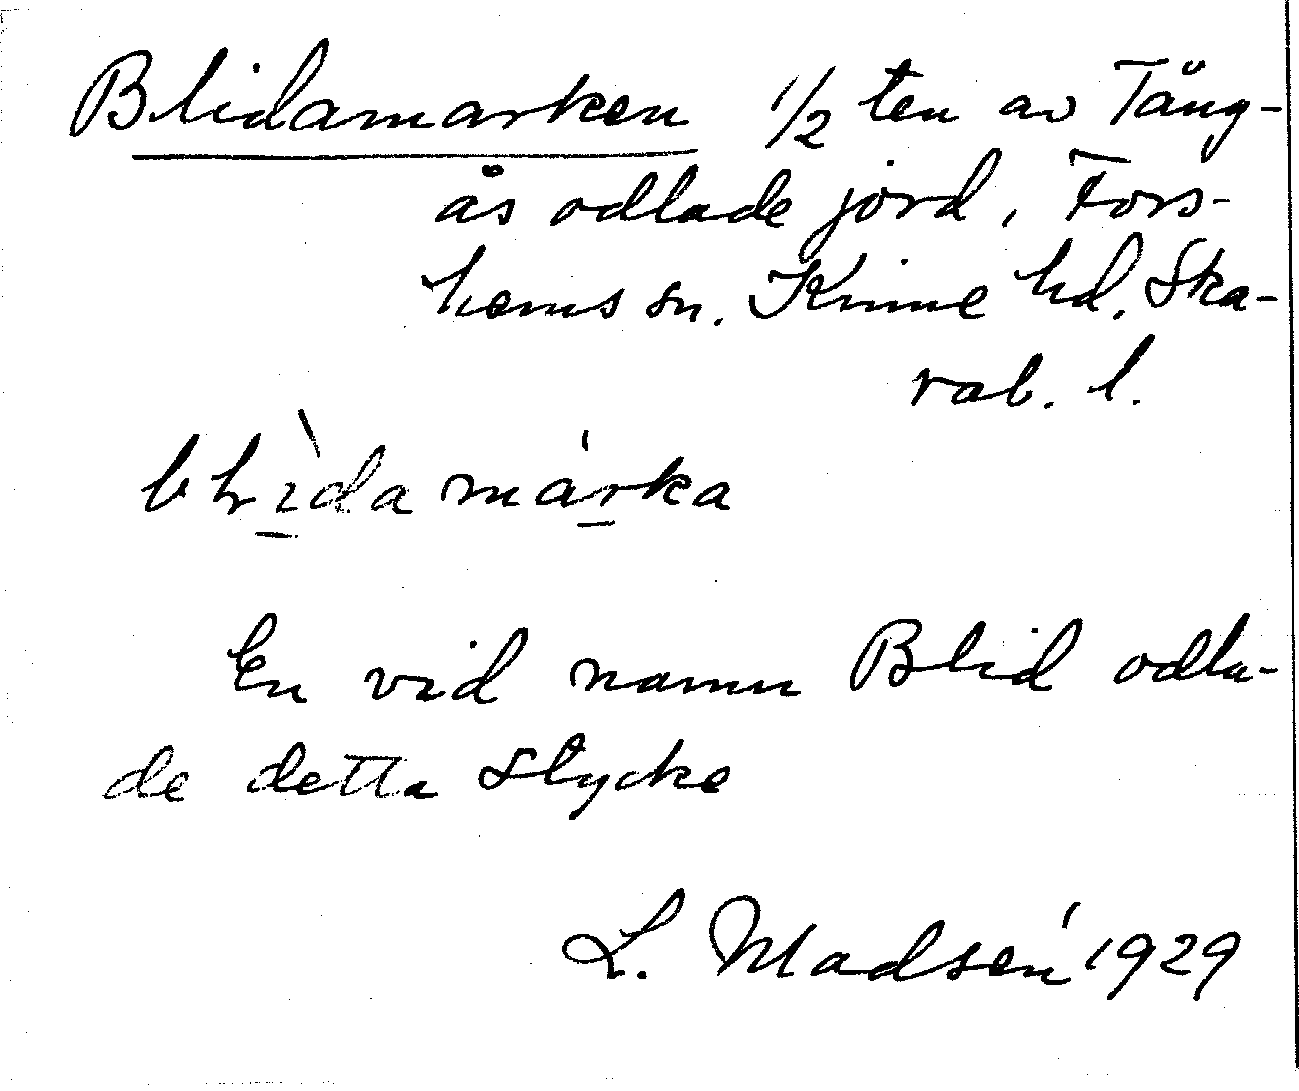 Blidamarken 1/2 ten av Täng-
ås odlade jord, Fors-
hems sn. Kinne hd. Ska-
rab. l.
blɩ̀damárka
En vid namn Blid odla-
de detta stycke
L. Madsén 1929